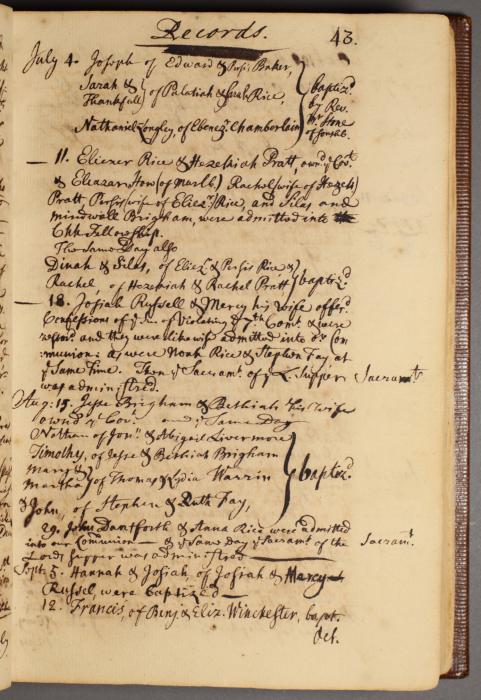 Records. 43.
July 4. Joseph of Edward & Persis Baker,
Sarah & Thankfull } of Palatiah & Sarah Rice,
Nathaniel Longley, of Ebenezr. Chamberlain
} baptizd. by Rev. Mr. Stone of Southb.
— 11. Eliezer Rice & Hezekiah Pratt, ownd ye Covt.
& Eleazar How (of Marlb.) Rachel (wife of Hezek.)
Pratt, Persis (wife of Eliezr.) Rice, and Silas and
Mindwell Brigham, were admitted into the
Chh Fellowship.
The Same Day also
Dinah & Silas, of Eliezr. & Persis Rice &
Rachel, of Hezekiah & Rachel Pratt } baptizd
— 18. Josiah Russell & Mercy his Wife offerd.
Confessions of ye Sin of Violating ye 7th. Comt. & were
and they were likewise admitted into or. Com
munion: as were Noah Rice & Stephen Fay at
ye Same Time. Then ye Sacramt. of ye L. Supper Sacramt.
was administred.
Aug. 15. Jesse Brigham & Bethiah his wife
ownd ye Covt. Same Day
Nathan of & Abigail Livermore
Timothy, of Jesse & Bethiah Brigham
Mary & Martha } of Thomas & Lydia Warrin
& John, of Stephen & Ruth Fay,
} baptizd.
29. John Dantforth & Anna Rice were admitted
into our Communion — & ye Same Day ye Sacramt. of the Sacramt.
Lords Supper was administred —
Sept. 5. Hannah & Josiah, of Josiah & Marcy
Russel, were baptized —
12. Francis, of Benj. & Eliz. Winchester, bapt.
Oct.